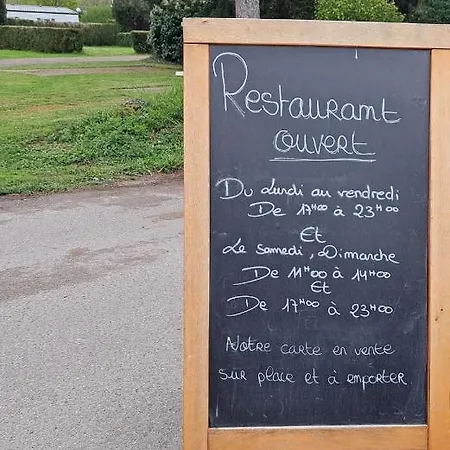 Restaurant
ouvert
Du Lundi au vendredi
De 17H00 à 23H00
Et
Le Samedi, Dimanche
De 11H00 à 14H00
Et
De 17H00 à 23H00
Notre carte en vente
sur place et à emporter.